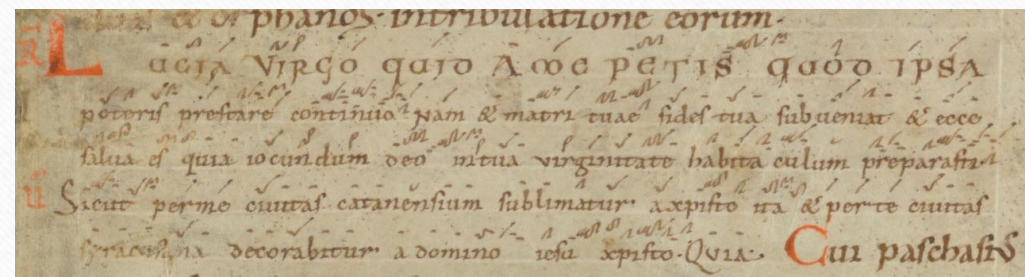 & orphanos· intribulatione eorum·
R LUCIA VIRGO QUID A ME PETIS QUOD IPSA
poteris prestare continuo· Nam & matri tuae fides tua subueniat & ecce
salua es quia iocundum deo intua uirginitate habitaculum preparasti·
V Sicut perme ciuitas catanensium sublimatur axpisto ita & perte ciuitas
syracusana decorabitur adomino iesu xpisto· Quia· Cui paschasius